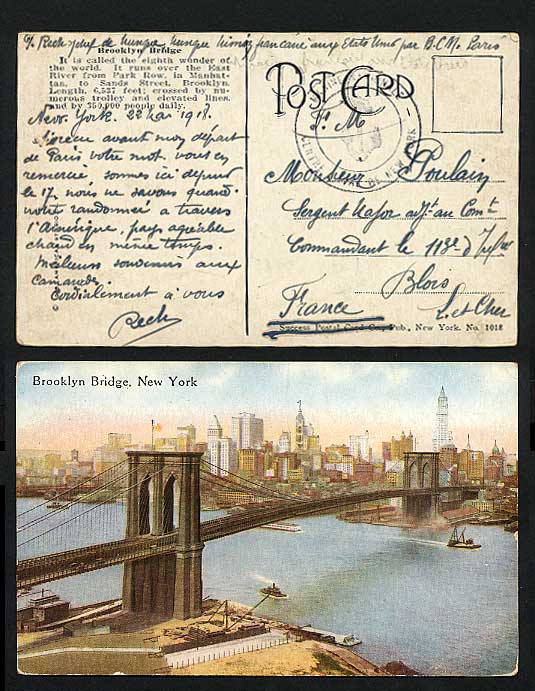 Brooklyn Bridge
It is called the eighth wonder of
the world. It runs over the East
River from Park Row, in Manhat-
tan, to Sands Street, Brooklyn.
Length, 6,537 feet; crossed by nu-
merous trolley and elevated lines,
and by 350,000 people daily.
New-York. 22 Mai 1918.
avant mon départ
de Paris votre mot. vous en
remercie, sommes ici depuis
le 17, nous ne savons quand
notre randonnée a travers
l'Amérique, pays agréable
chaud en même temps.
Meilleurs souvenirs aux
camarades
Cordialement à vous
Rech
POST CARD
Monsieur Poulain
Sergent Major adjt au Comt
Commandant le 113e d'Infrie
Blois
France L. et Cher
Success Postal Card Co., Pub., New York. No. 1018
Brooklyn Bridge, New York